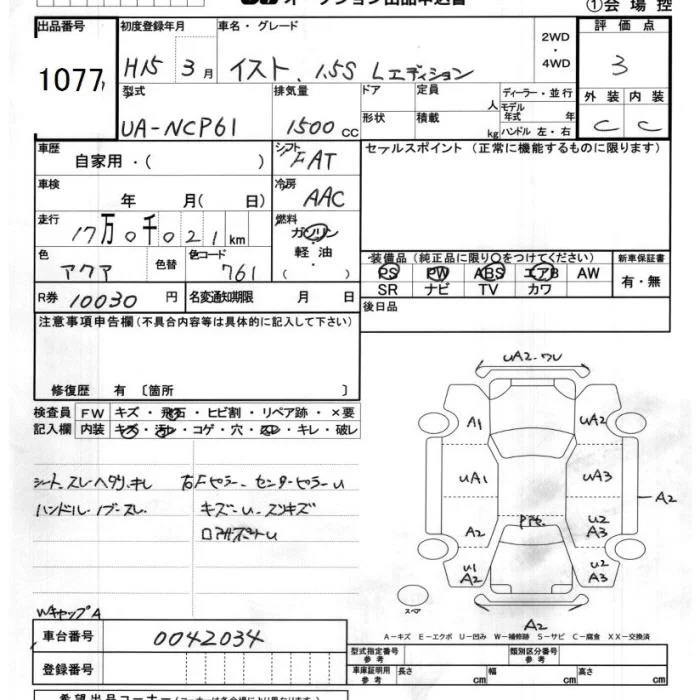 オークション出品申込書
①会場控
出品番号 1077
初度登録年月 H15 3月
車名・グレード イスト 1.5S Lエディション
2WD・4WD
評価点 3
型式 UA-NCP61
排気量 1500cc
ドア 定員 人
形状 積載 kg
ディーラー・並行
モデル年式 年
ハンドル 左・右
外装 C 内装 C
車歴 自家用・( )
シフト FAT
セールスポイント (正常に機能するものに限ります)
車検 年 月( 日)
冷房 AAC
走行 17万0千021km
燃料 ガソリン 軽油 ( ・ )
色 アクア 色替 色コード 761
装備品(純正品に限り○をつけてください)
PS PW ABS エアB AW
SR ナビ TV カワ
新車保証書 有・無
R券 10030円 名変通知期限 月 日
後日品
注意事項申告欄(不具合内容等は具体的に記入して下さい)
修復歴 有〔箇所 〕
検査員 FW キズ・飛石・ヒビ割・リペア跡・×要
記入欄 内装 キズ・汚レ・コゲ・穴・スレ・キレ・破レ
シート スレ ヘタリ キレ
ハンドル・ノブ スレ
右Fピラー・センターピラーU
キズ・U・スリキズ
Wキャップ A
UA2・ワレ
A1 UA2
UA1 UA3
A2
A2 U2 A3
U1 A2 U2 A3
スペア
A2
A-キズ E-エクボ U-凹み W-補修跡 S-サビ C-腐食 XX-交換済
車台番号 0042034
登録番号
型式指定番号 参考 類別区分番号 参考
車庫証明用 参考 長さ cm 幅 cm 高さ cm
希望出品コーナー